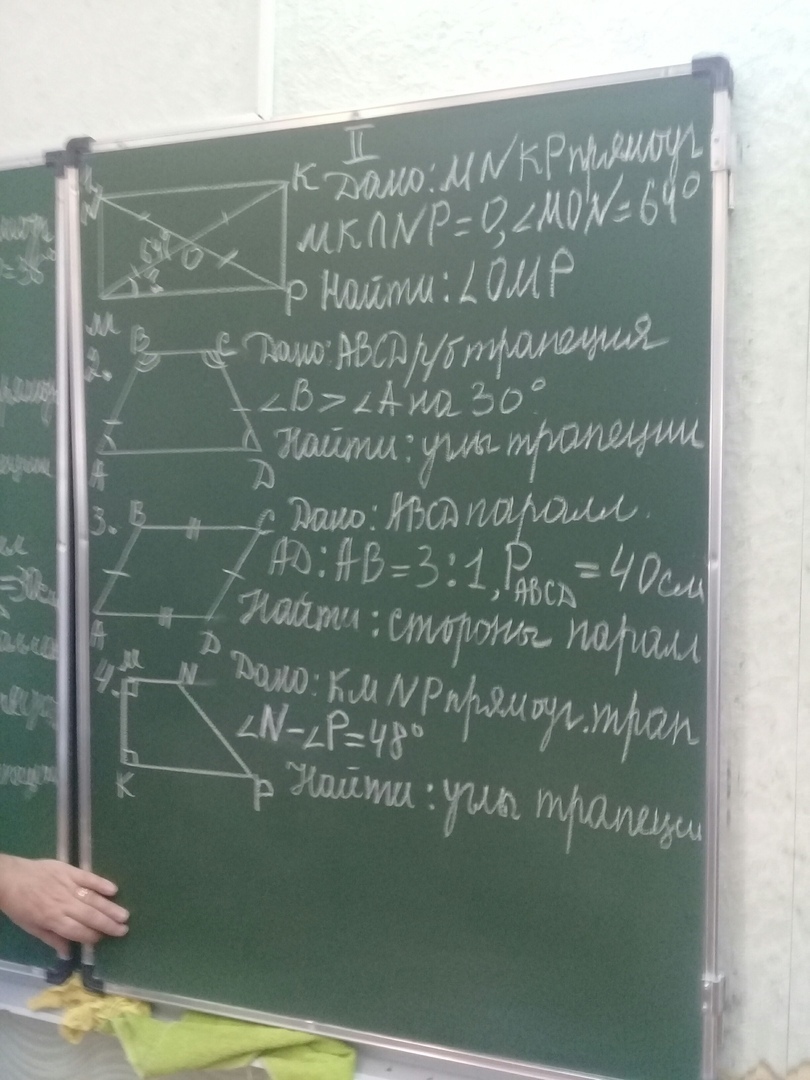 II
1.
N
K
Дано: MNKP прямоуг
MK∩NP=O, ∠MON=64°
64°
O
?
P
Найти: ∠OMP
M
B
C
2.
Дано: ABCD р/б трапеция
∠B > ∠A на 30°
Найти: углы трапеции
A
D
3.
B
C
Дано: ABCD паралл.
AD:AB=3:1, P_ABCD=40см
Найти: стороны парал
A
D
4.
M
N
Дано: KMNP прямоуг. трап
∠N-∠P=48°
K
P
Найти: углы трапеци